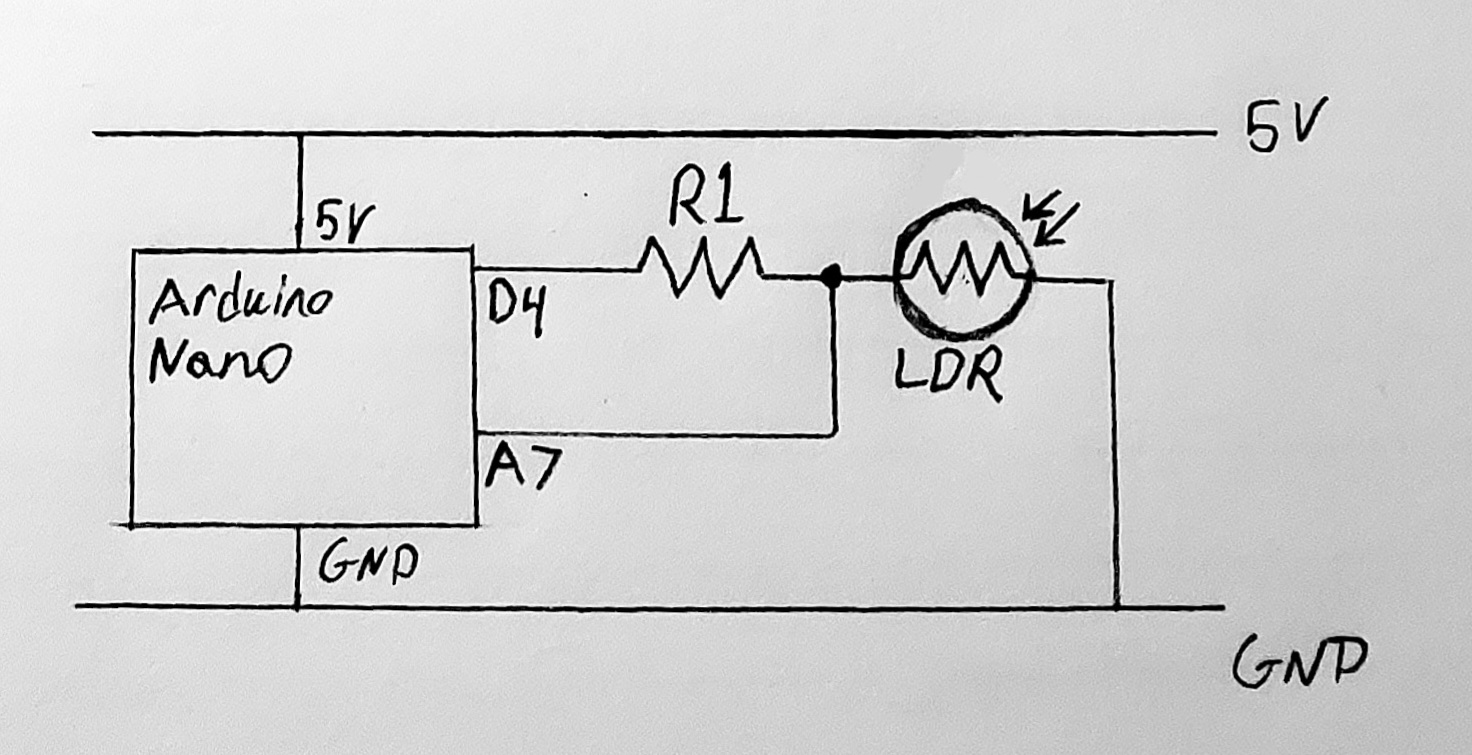 5V
R1
5V
Arduino
Nano
D4
LDR
A7
GND
GND